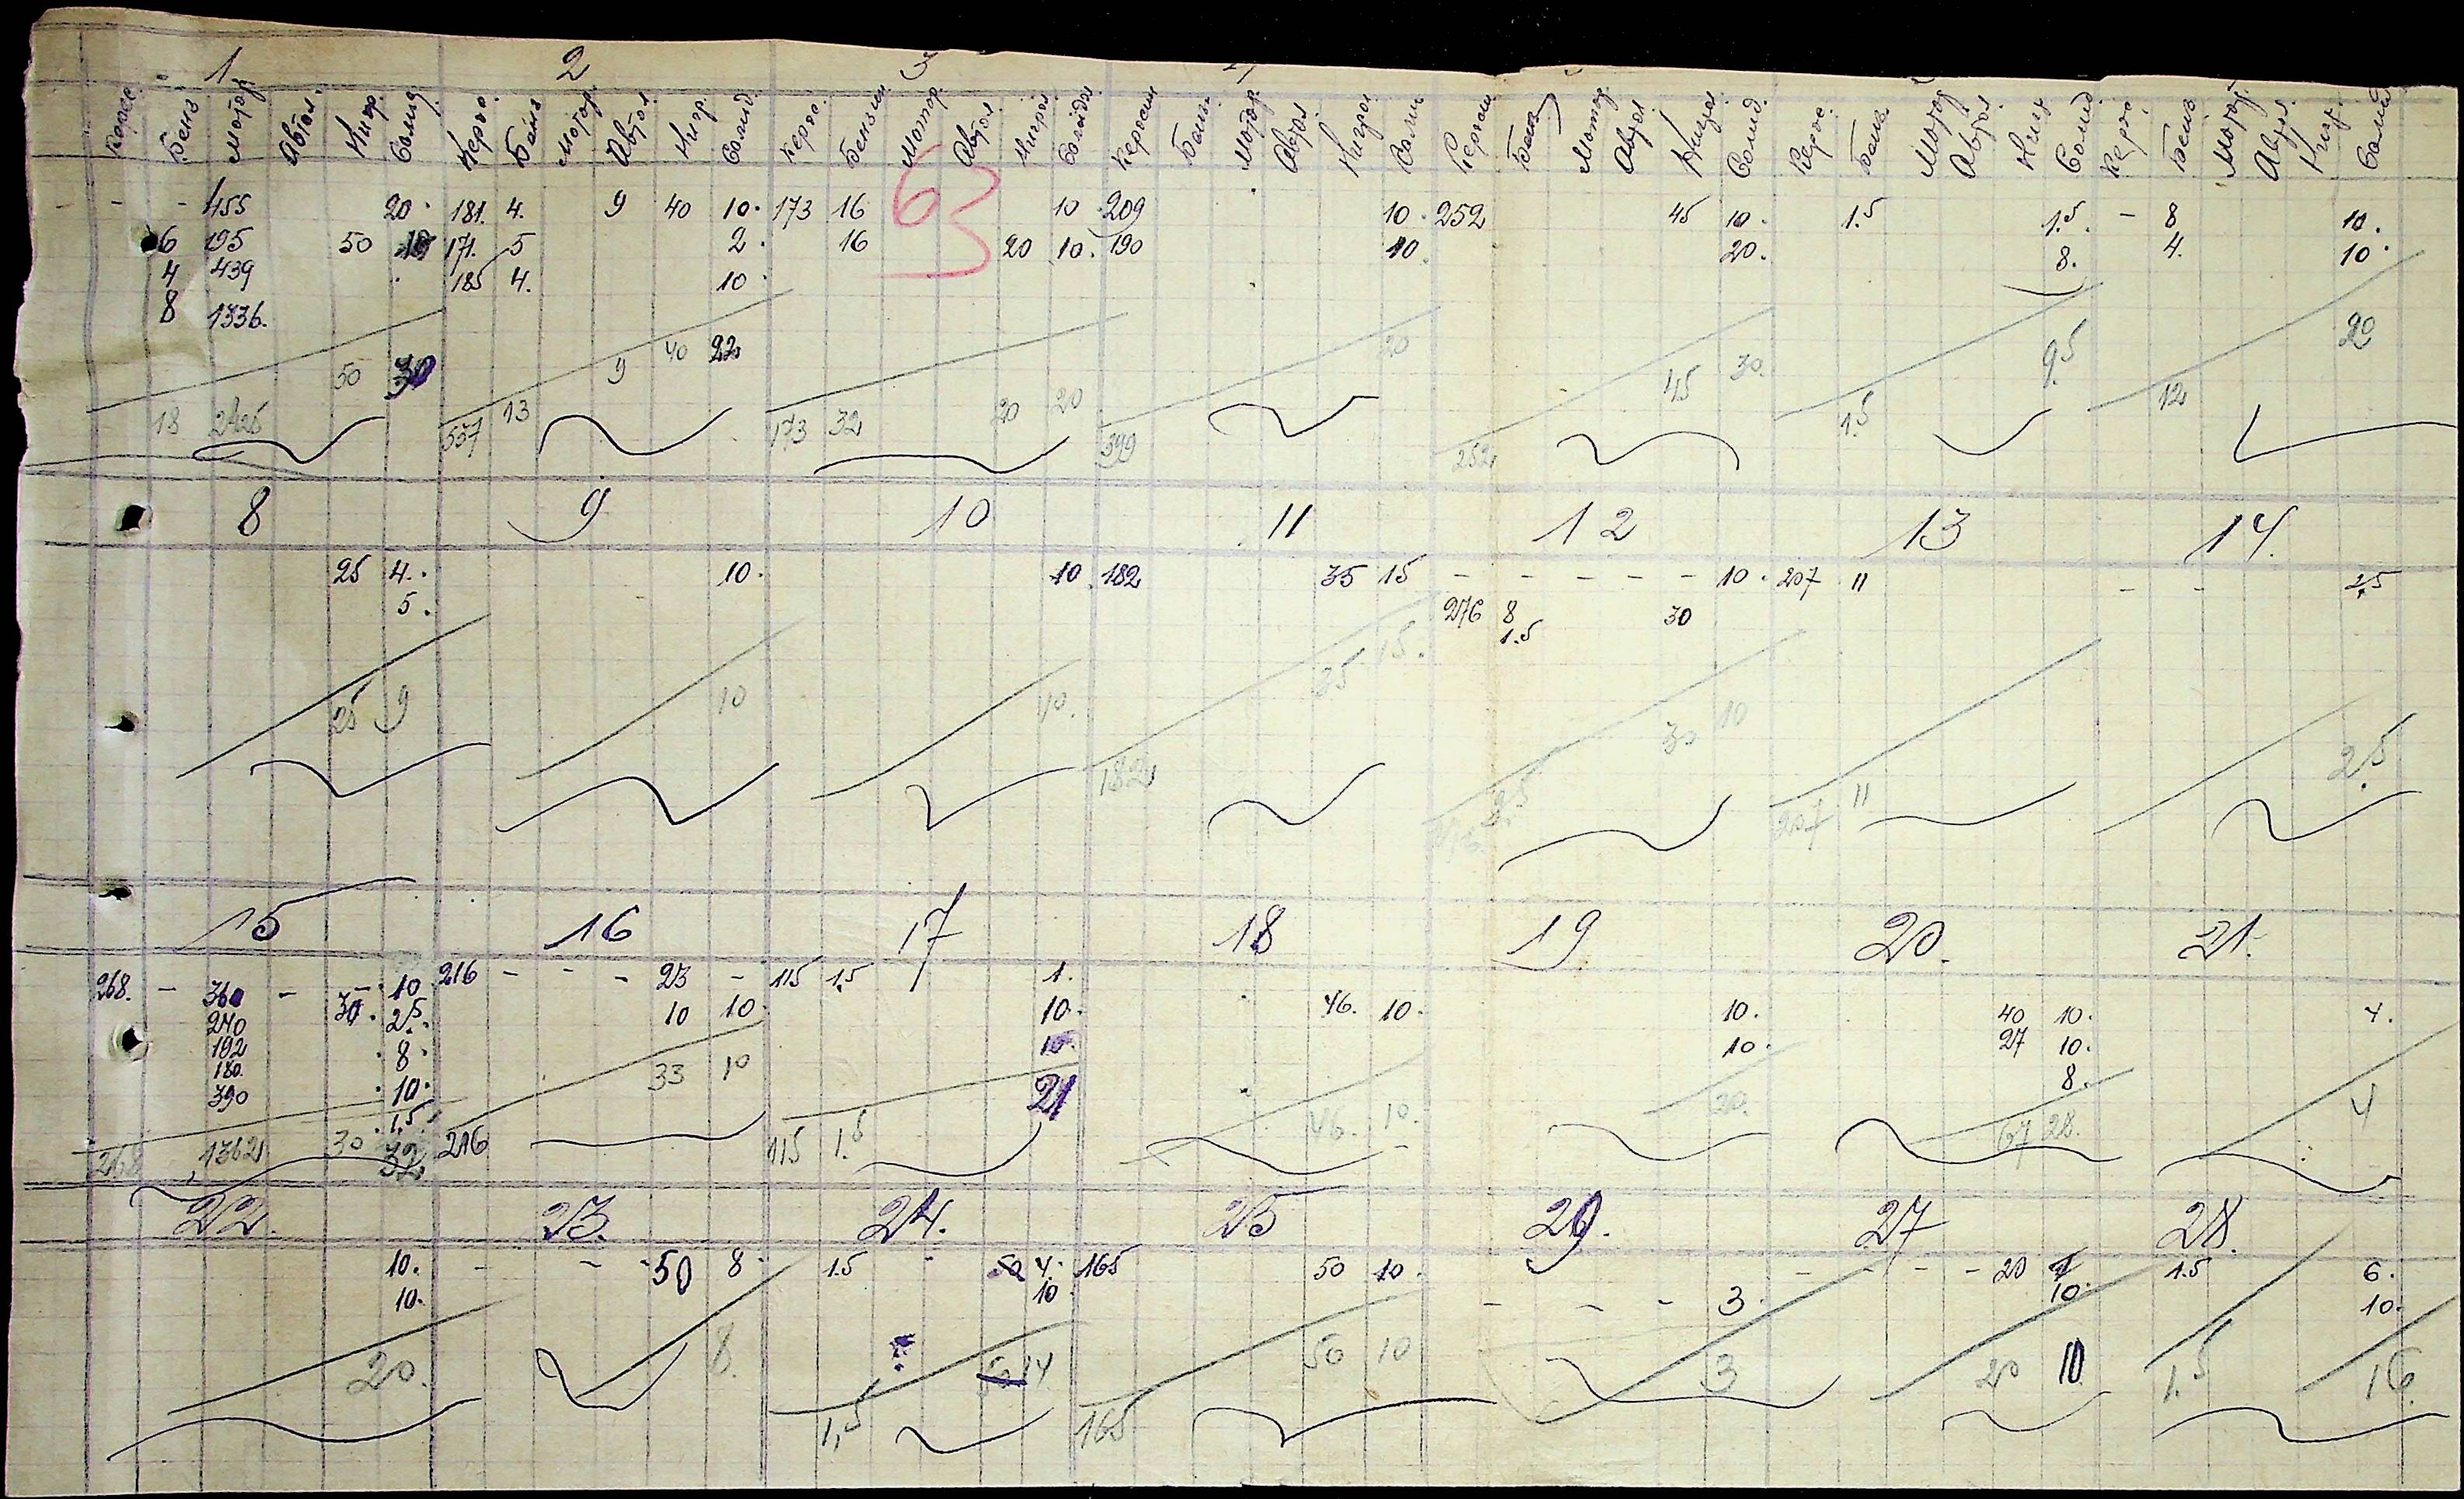 1 2 3
Керос. Бенз Мотор Автол. Нигр. Солид. Керос. Бенз Мотор. Автол Нигр. Солид. Керос. Бензин Мотор. Автол Нигрол Солидол Керосин Бенз. Мотор. Автол Нигрол Солид Керосин Бенз Мотор Автол Нигрол Солид. Керос. Бенз. Мотор Автол. Нигр Солид. Керос. Бенз Мотор. Автол. Нигр Солид
63
- - 455 20. 181. 4. 9 40 10. 173 16 10. 209 10. 252 45 10. 1.5 1.5 - 8 10.
6 195 50 10 171. 5 2. 16 20 10. 190 10. 20. 8. 4. 10.
4 439 185 4. 10.
8 1336.
50 30 9 40 22 20 45 30. 9.5 20
18 2425 537 13 173 32 20 20 399 252 1.5 12
8 9 10 11 12 13 14.
25 4. 10. 10. 182 35 15 - - - - - 10. 207 11 - - 2,5
5. 276 8 30
1.5
25 9 10 10. 35 15. 30 10 2.5
182 9.5 207 11
15 16 17 18 19 20. 21.
268. - 360 - - 10 216 - - - 23 - 115 1,5 1.
240 30. 2.5 10 10. 10. 46. 10. 10. 40 10. 4.
192 8. 10. 10. 27 10.
180. 8.
390 10. 33 10 21
1,5
268 1362 30 32 216 115 1.5 46. 10. 20. 67 28. 4
22. 23. 24. 25 26. 27 28.
10. - - -50 8. 1.5 - 50 4. 165 50 10. - - - - 20 1 1.5 6.
10. 10. - - - 3. 10. 10.
20. 8. 50 14 50 10 3 20 10 1.5 16
1,5 165